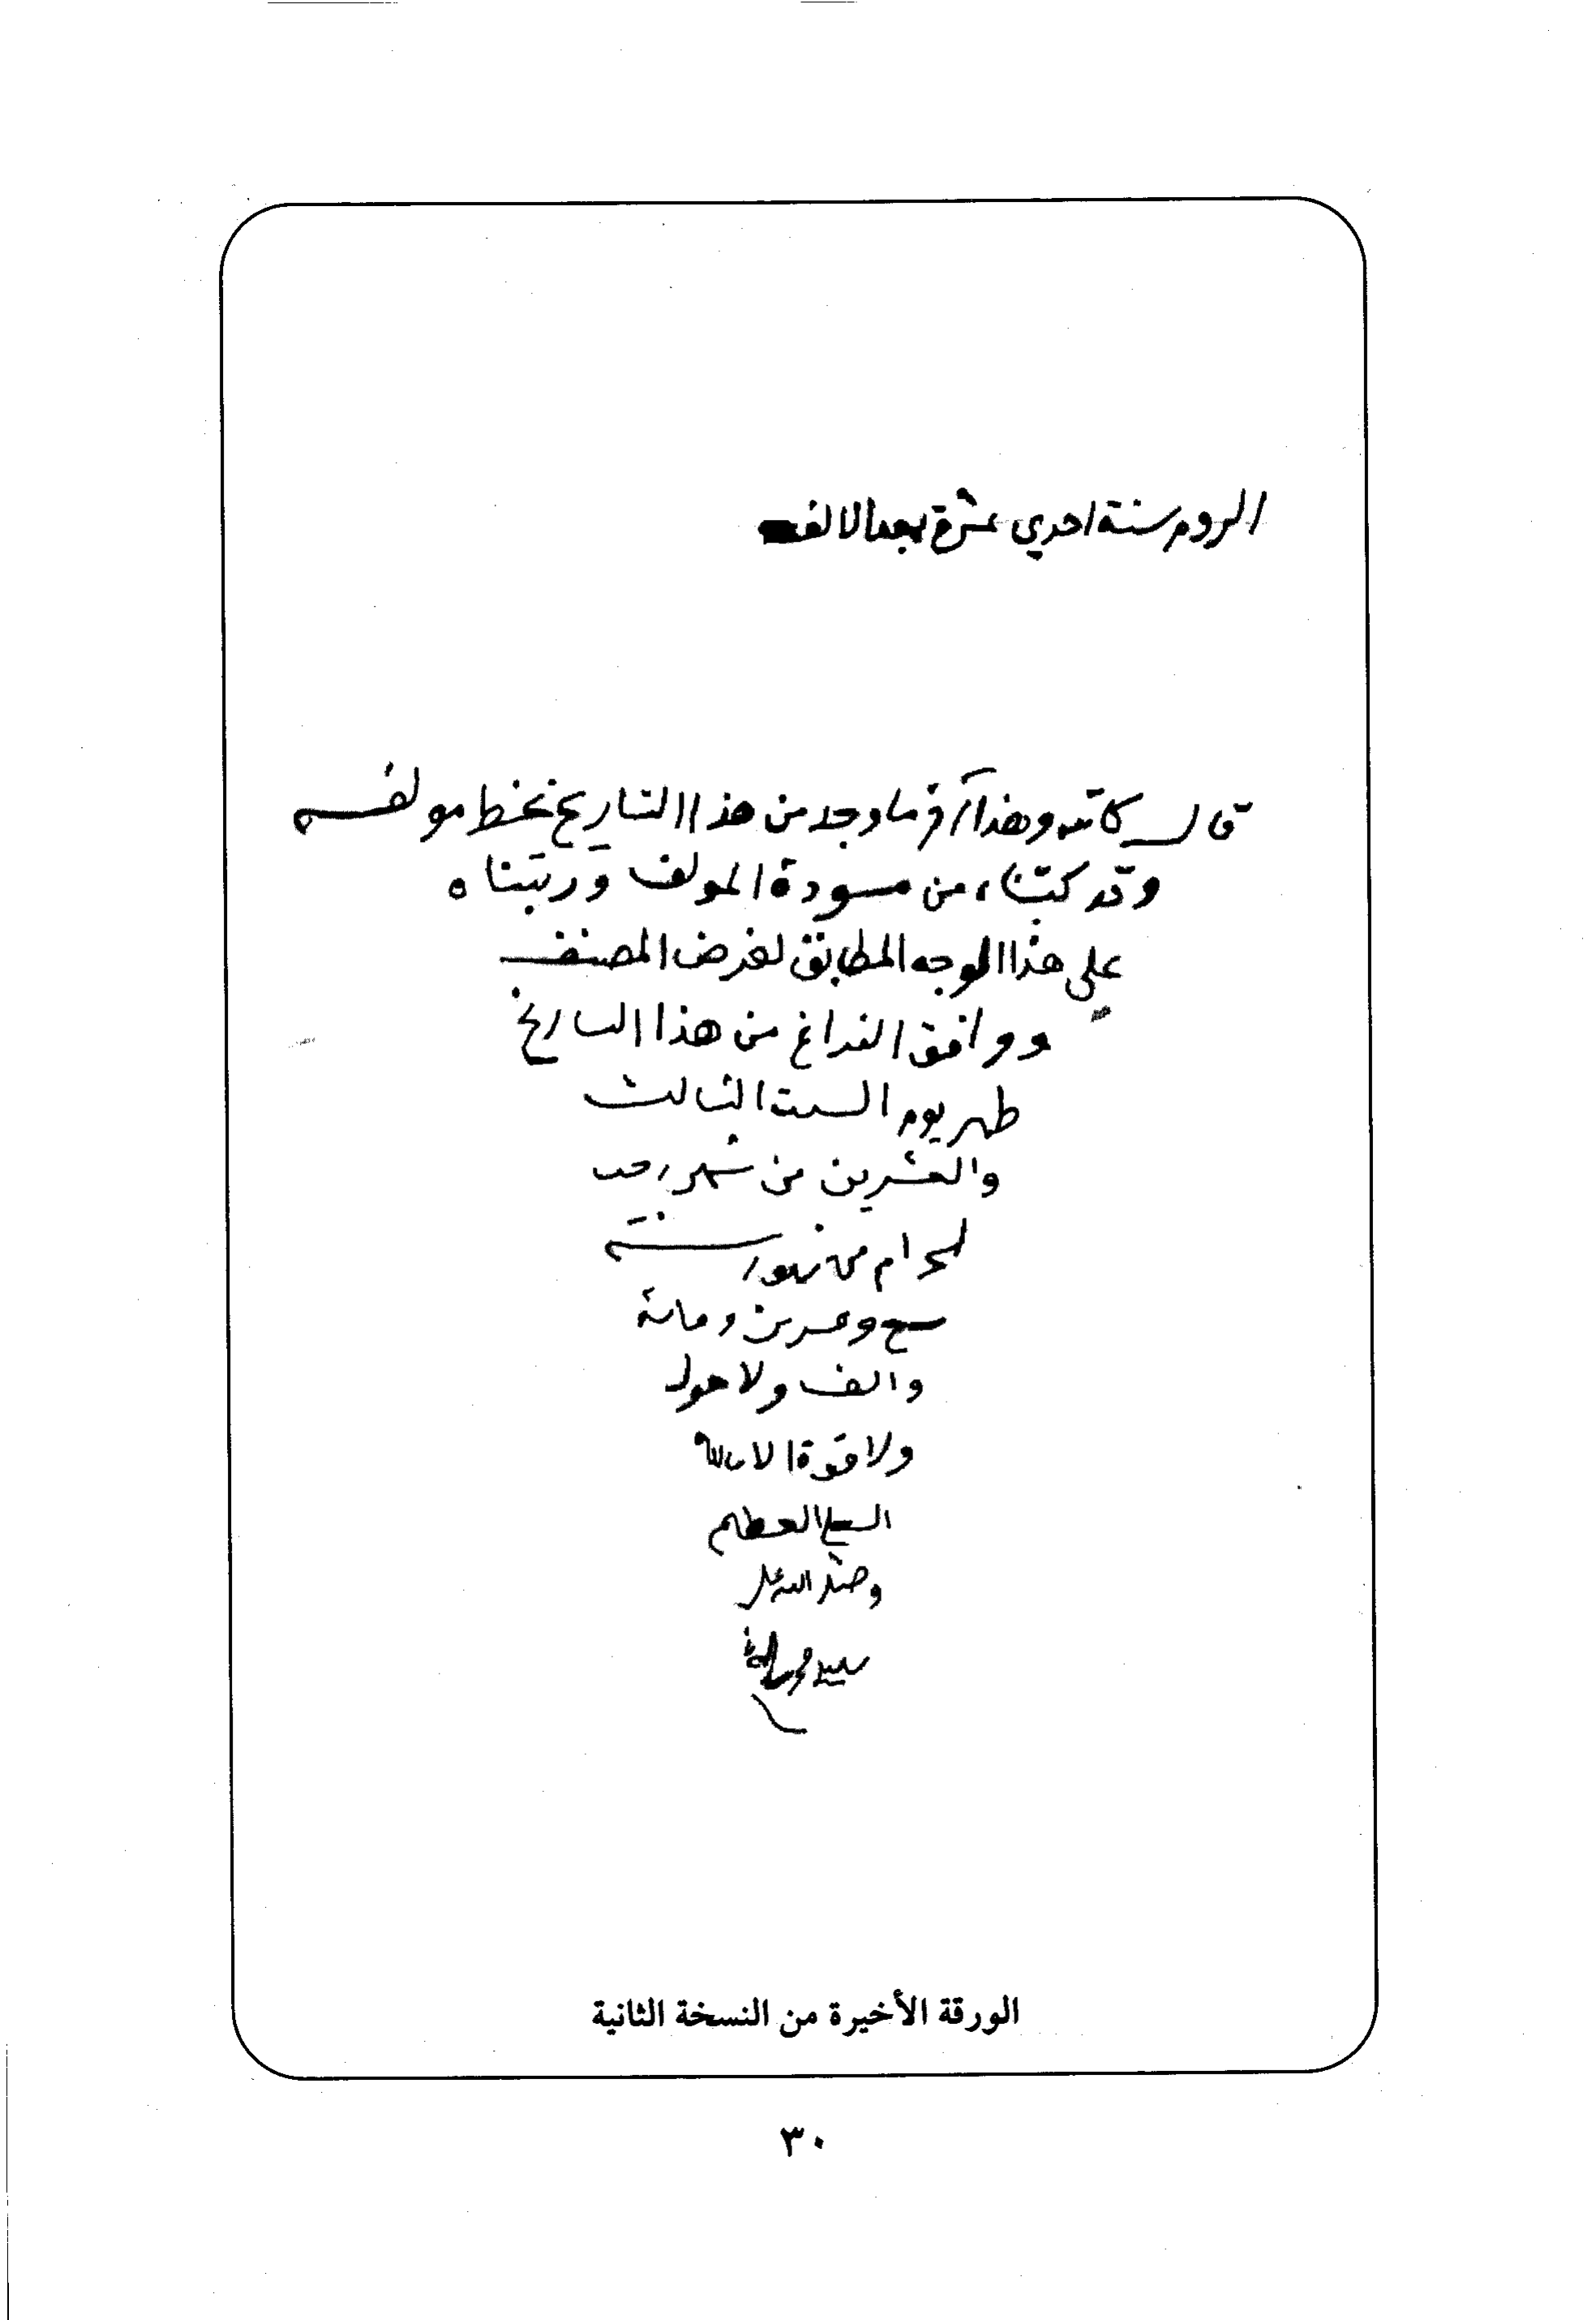 الروم سنة احدي عشرة بعد الالف
قال كاتبه وهذا آخر ما وجد من هذا التاريخ بخط مولفه
وقد كتبناه من مسودة المولف ورتبناه
علي هذا الوجه المطابق لغرض المصنف
ووافق الفراغ من هذا التاريخ
ظهر يوم السبت الثالث
والعشرين من شهر رجب
الحرام من شهور سنة
سبع وعشرين ومائة
والف ولا حول
ولا قوة الا بالله
العلي العظيم
وصلى الله على
سيدنا محمد وآله
الورقة الأخيرة من النسخة الثانية
٣٠